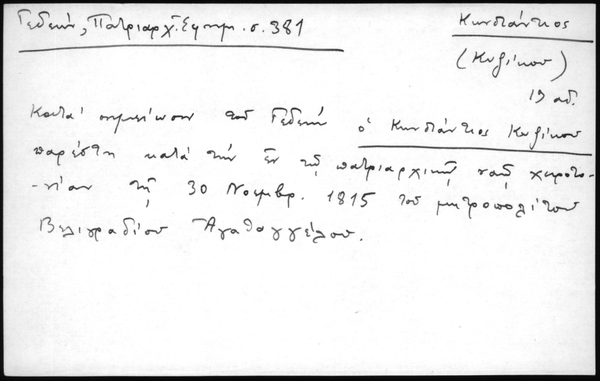 Γεδεών, Πατριαρχ. Εφημ. σ. 381
Κωνστάντιος
(Κυζίκου)
19 αι.
Κατά σημείωσιν του Γεδεών ο Κωνστάντιος Κυζίκου
παρέστη κατά την εν τῷ πατριαρχικῷ ναῷ χειροτο-
-νίαν τῇ 30 Νοεμβρ. 1815 του μητροπολίτου
Βελιγραδίου Αγαθαγγέλου.